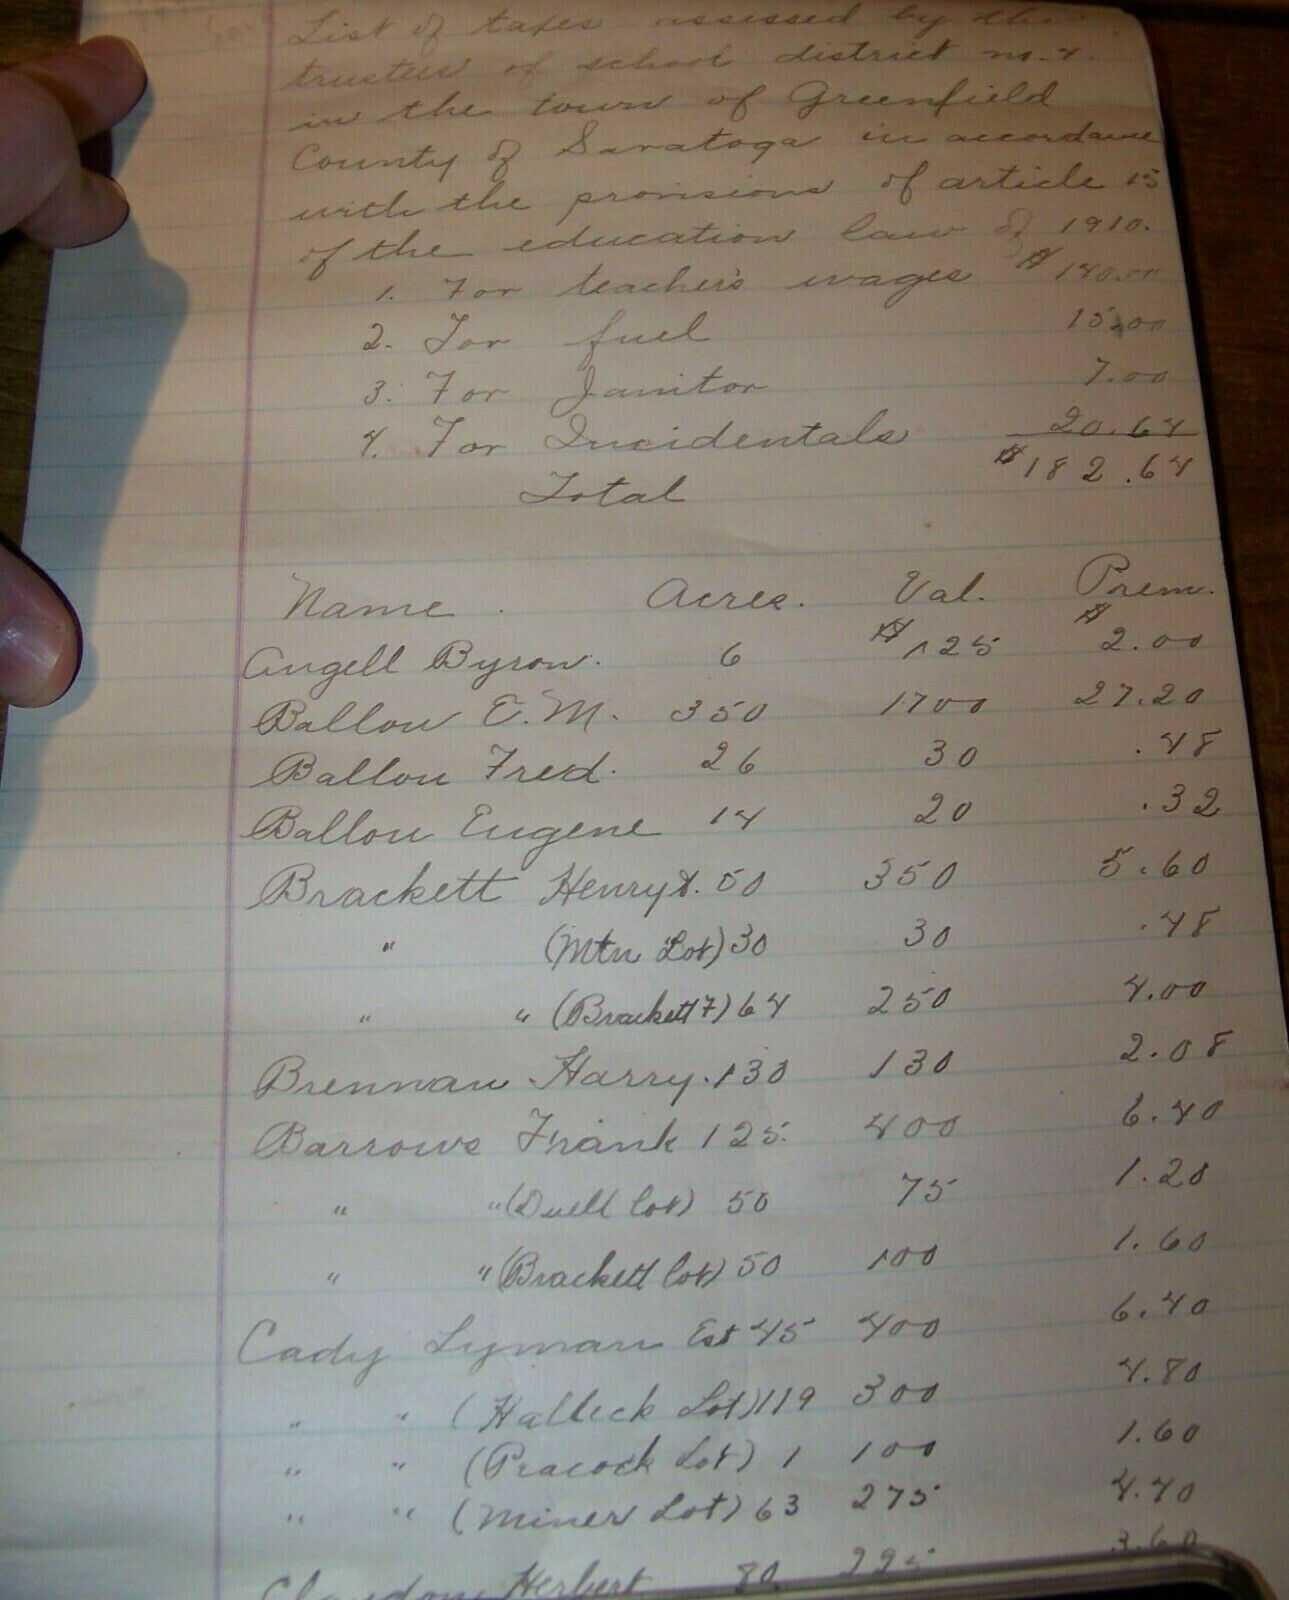 List of taxes assessed by the
trustees of school district no. 4.
in the town of Greenfield
County of Saratoga in accordance
with the provisions of article 15
of the education law of 1910.
1. For teacher's wages $140.00
2. For fuel 15.00
3. For Janitor 7.00
4. For Incidentals 20.64
Total $182.64
Name. Acres. Val. Prem.
Angell Byron. 6 $125 $2.00
Ballou E.M. 350 1700 27.20
Ballou Fred. 26 30 .48
Ballou Eugene 14 20 .32
Brackett Henry 50 350 5.60
" (Mtn Lot) 30 30 .48
" " (Brackett ) 64 250 4.00
Brennan Harry. 130 130 2.08
Barrows Frank 125. 400 6.40
" " (Duell lot) 50 75 1.20
" " (Brackett lot) 50 100 1.60
Cady Lyman Est 45 400 6.40
" " (Halleck Lot) 119 300 4.80
" " (Peacock Lot) 1 100 1.60
" " (Miner Lot) 63 275 4.40
Herbert 80 225 3.60